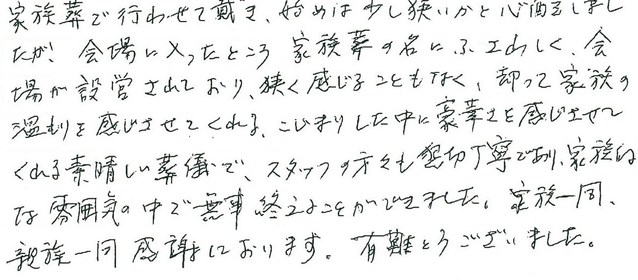 家族葬で行わせて戴き、始めは少し狭いかと心配しまし
たが、会場に入ったところ家族葬の名にふさわしく、会
場が設営されており、狭く感じることもなく、却って家族の
温もりを感じさせてくれる、こじまりした中に豪華さを感じさせて
くれる素晴しい葬儀で、スタッフの方々も懇切丁寧であり、家族的
な雰囲気の中で無事終えることができました。家族一同、
親族一同感謝しております。有難とうございました。